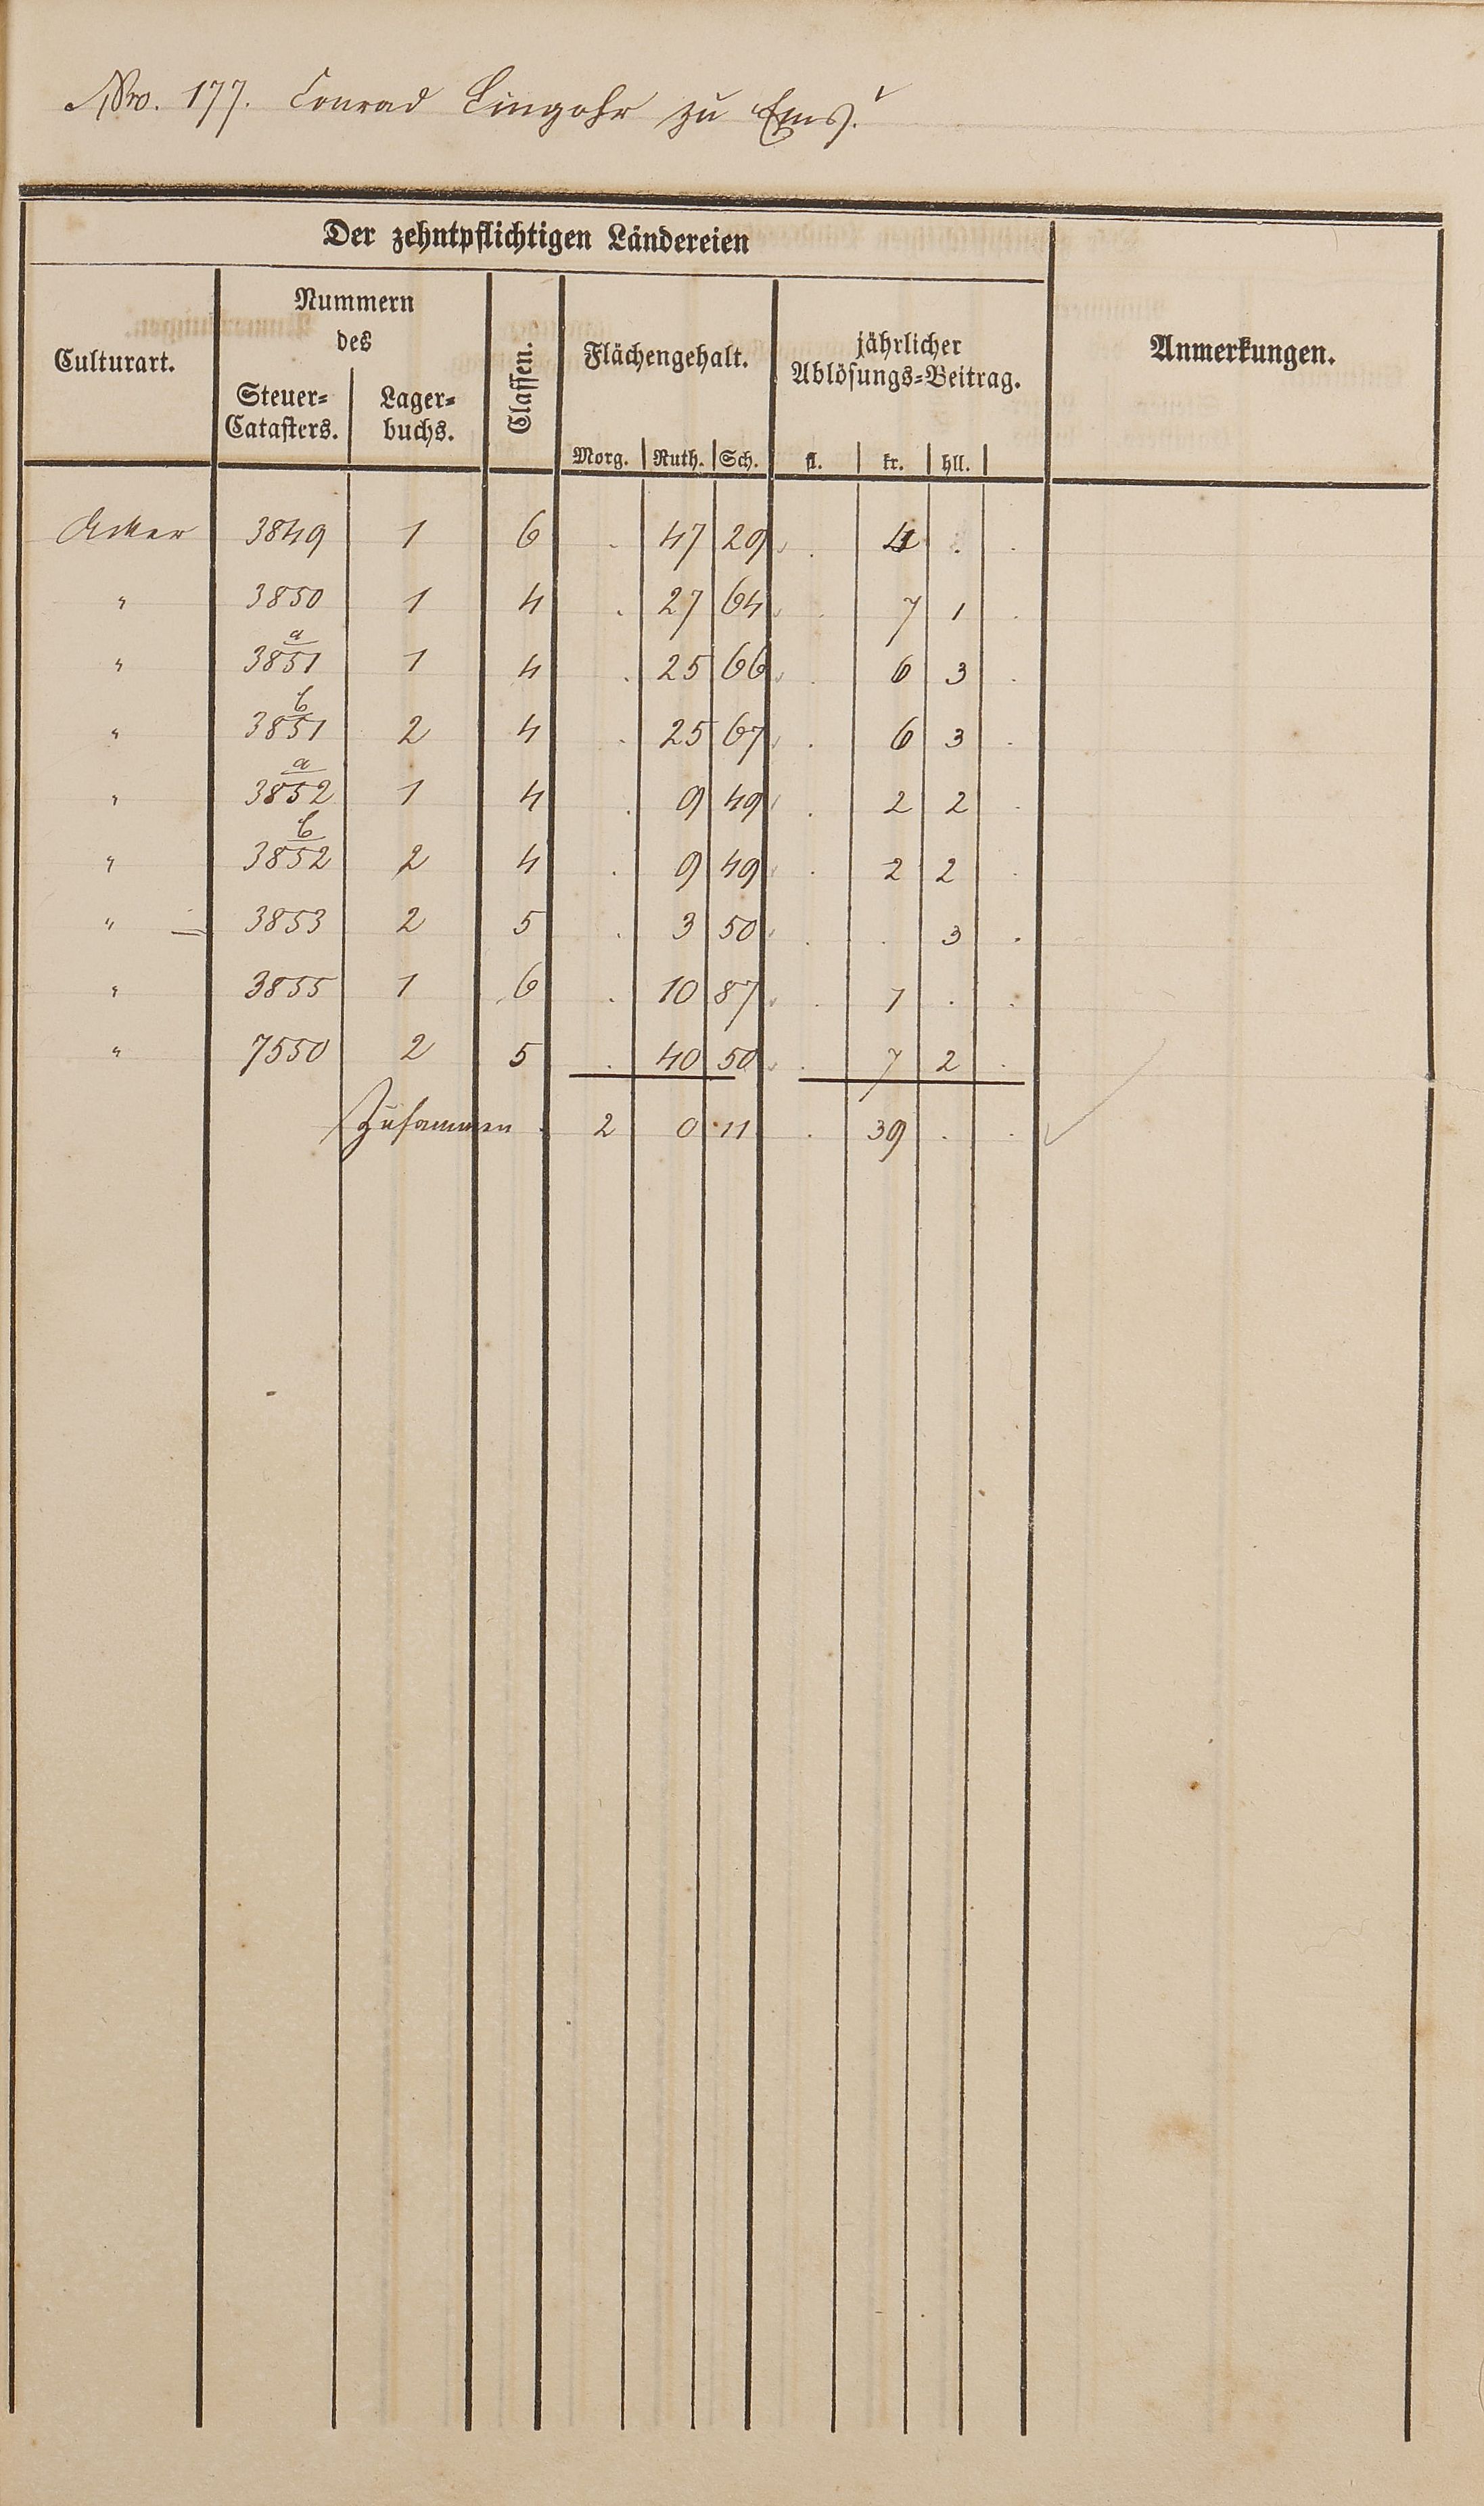 Nro. 177. Conrad Lingohr zu Ems.
Der zehntpflichtigen Ländereien
Culturart.
Nummern
des
Steuer-
Catasters.
Lager-
buchs.
Classen.
Flächengehalt.
Morg. Ruth. Sch.
jährlicher
Ablösungs-Beitrag.
fl. kr. hll.
Anmerkungen.
Acker 3849 1 6 . 47 29 . 4 . .
" 3850 1 4 . 27 64 . 7 1 .
" 3851 a 1 4 . 25 66 . 6 3 .
" 3851 b 2 4 . 25 67 . 6 3 .
" 3852 a 1 4 . 9 49 . 2 2 .
" 3852 b 2 4 . 9 49 . 2 2 .
" 3853 2 5 . 3 50 . . 3 .
" 3855 1 6 . 10 87 . 1 . .
" 7550 2 5 . 40 50 . 7 2 .
Zusammen . 2 0 11 . 39 . .